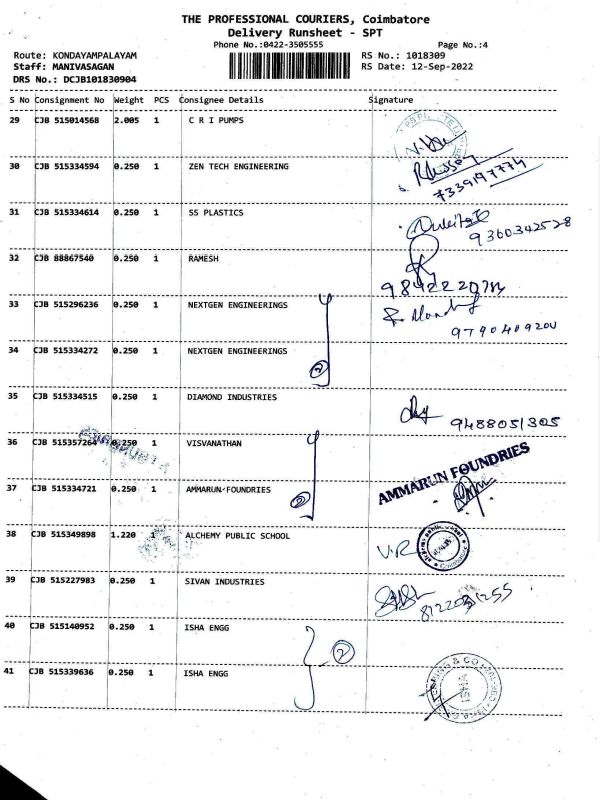 THE PROFESSIONAL COURIERS, Coimbatore
Delivery Runsheet - SPT
Phone No.:0422-3505555 Page No.:4
Route: KONDAYAMPALAYAM RS No.: 1018309
Staff: MANIVASAGAN RS Date: 12-Sep-2022
DRS No.: DCJB101830904
S No Consignment No Weight PCS Consignee Details Signature
29 CJB 515014568 2.005 1 C R I PUMPS
30 CJB 515334594 0.250 1 ZEN TECH ENGINEERING
7339197774
31 CJB 515334614 0.250 1 SS PLASTICS
9360342528
32 CJB 88867540 0.250 1 RAMESH
33 CJB 515296236 0.250 1 NEXTGEN ENGINEERINGS
9790409200
34 CJB 515334272 0.250 1 NEXTGEN ENGINEERINGS
2
35 CJB 515334515 0.250 1 DIAMOND INDUSTRIES
9488051305
36 CJB 515357264 0.250 1 VISVANATHAN
37 CJB 515334721 0.250 1 AMMARUN FOUNDRIES AMMARUN FOUNDRIES
2
38 CJB 515349898 1.220 1 ALCHEMY PUBLIC SCHOOL V.R
39 CJB 515227983 0.250 1 SIVAN INDUSTRIES
8122031255
40 CJB 515140952 0.250 1 ISHA ENGG
2
41 CJB 515339636 0.250 1 ISHA ENGG
ISHA